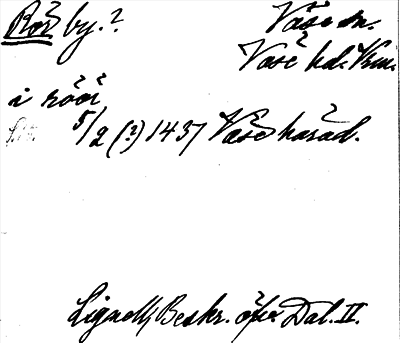 Rör by.?
Väse sn.
Väse hd. Vrm.
i rööi
5/2 (?) 1437 Väse härad.
Lignell, Beskr. öfver Dal. II.